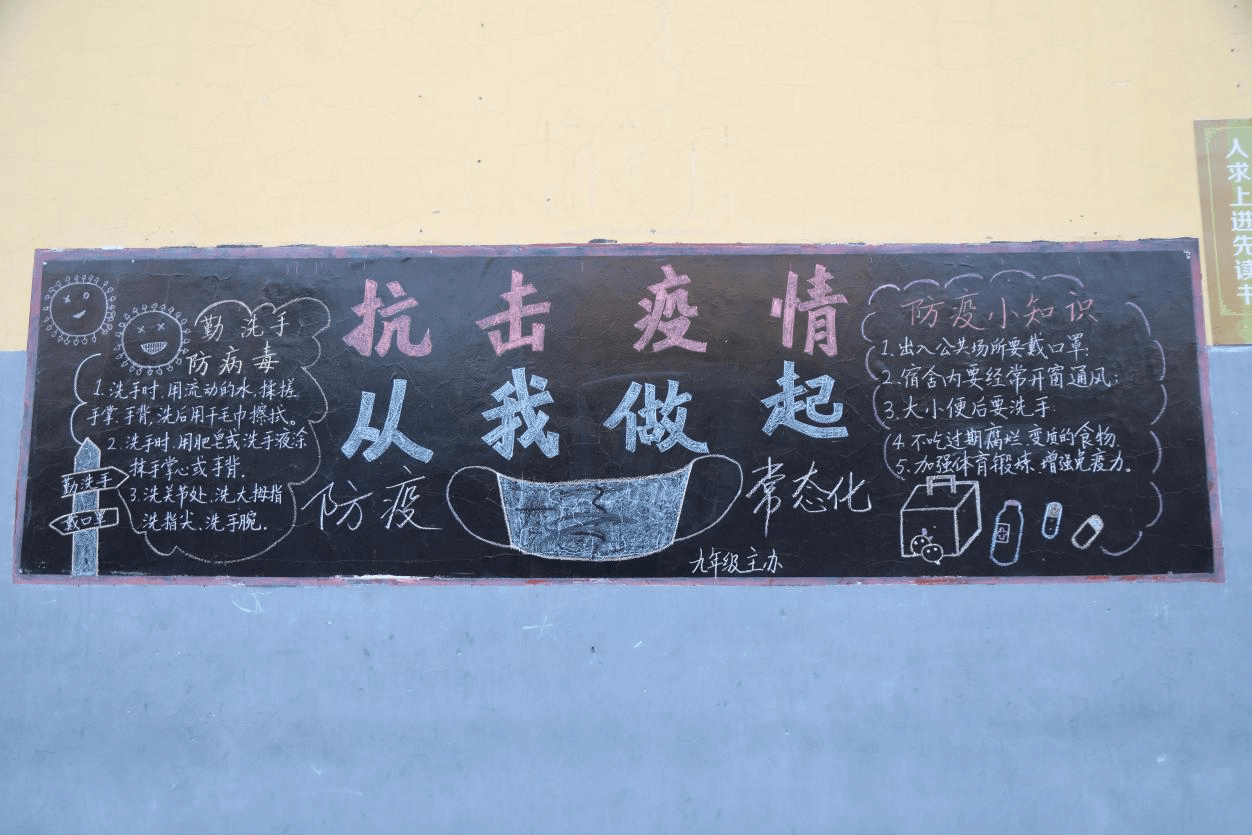 抗击疫情
从我做起
防疫
常态化
九年级主办
勤洗手
防病毒
1.洗手时,用流动的水,揉搓,
手掌,手背,洗后用干毛巾擦拭。
2.洗手时,用肥皂或洗手液涂
抹手掌心或手背.
3.洗关节处、洗大拇指
洗指尖、洗手腕。
勤洗手
戴口罩
防疫小知识
1.出入公共场所要戴口罩;
2.宿舍内要经常开窗通风;
3.大小便后要洗手.
4.不吃过期腐烂,变质的食物.
5.加强体育锻炼,增强免疫力。
人求上进先读书